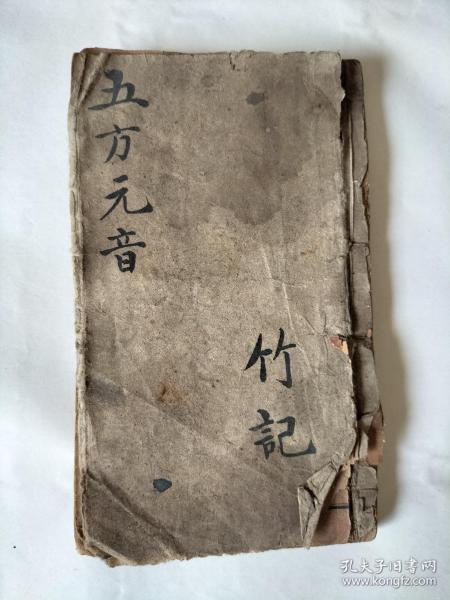 五方元音
竹記
孔夫子旧书网
www.kongfz.com